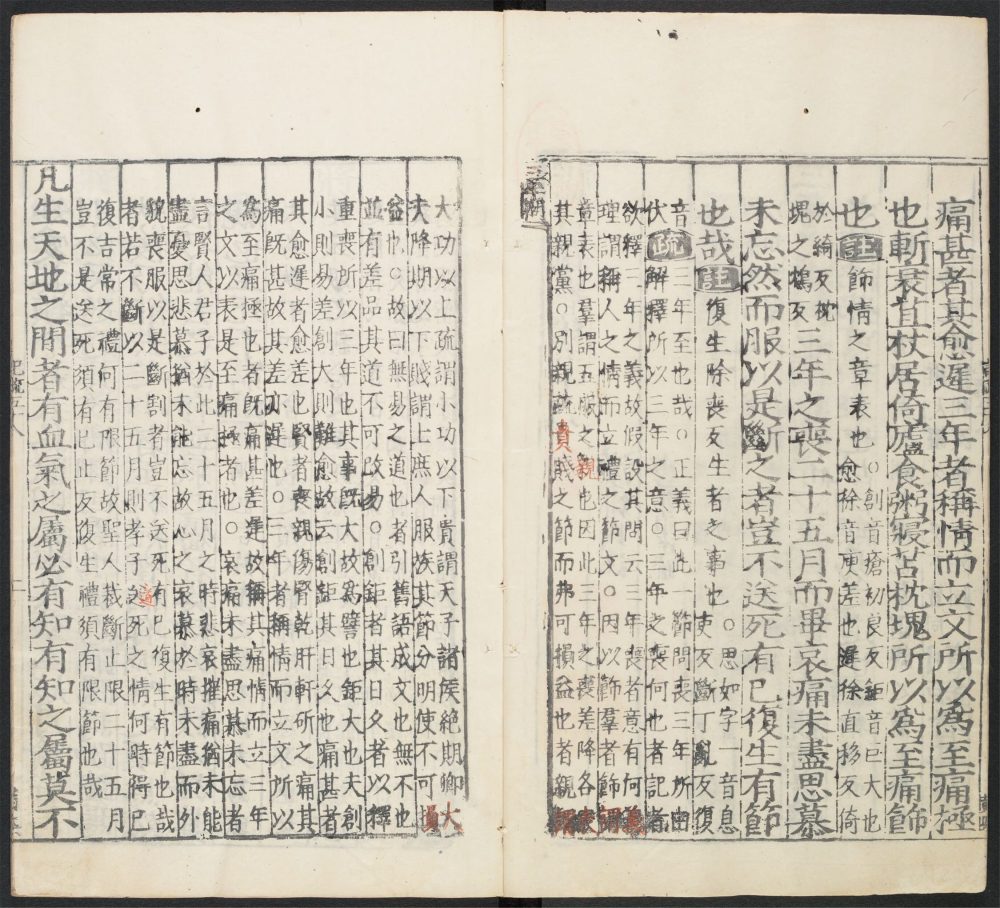 痛甚者其愈遲三年者稱情而立文所以為至痛極
也斬衰苴杖居倚廬食粥寢苫枕塊所以為至痛飾
也註飾情之章表也○創音瘡初良反鉅音巨大也愈徐音庾差也遲徐直移反倚
於綺反枕塊之鴆反三年之喪二十五月而畢哀痛未盡思慕
未忘然而服以是斷之者豈不送死有已復生有節
也哉註復生除喪反生者之事也○思如字一音息吏反斷丁亂反復
音伏疏三年至也哉○正義曰此一節問喪三年所由
解釋所以三年之意○三年之喪何也者記者
欲釋三年之義故假設其問云三年喪者意有何義
理謂稱人之情而立禮之節文○因以飾羣者飾謂
章表也羣謂五服之親也因此三年之喪差降各表
其親黨○別親疏貴賤之節而弗可損益也者親謂
三年問
大功以上疏謂小功以下貴謂天子諸侯絕期卿大
夫降期以下賤謂士庶人服族其節分明使不可損
益也○故曰無易之道也者引舊語成文也無不也
並有差品其道不可改易○創鉅者其日久者以釋
重喪所以三年也其事既大故為譬也鉅大也夫創
小則易差創大則難愈故云創鉅其日久也痛甚者
其愈遲者愈差也賢者喪親傷腎乾肝斬斫之痛其
痛既甚故其差亦遲也○三年者稱情而立文所以
為至痛極也者既痛甚差遲故稱其痛情而立三年
之文以表是至痛極者也○哀痛未盡思慕未忘者
言賢人君子於此二十五月之時悲哀摧痛猶未能
盡憂思悲慕猶未能忘故心之哀慕於時未盡而外
貌喪服以是斷割者豈不送死有已復生有節也哉
者若不斷以二十五月則孝子送死之情何時得已
復吉常之禮何有限節故聖人裁斷止限二十五月
豈不是送死須有已止反復生禮須有限節也哉
凡生天地之間者有血氣之屬必有知有知之屬莫不